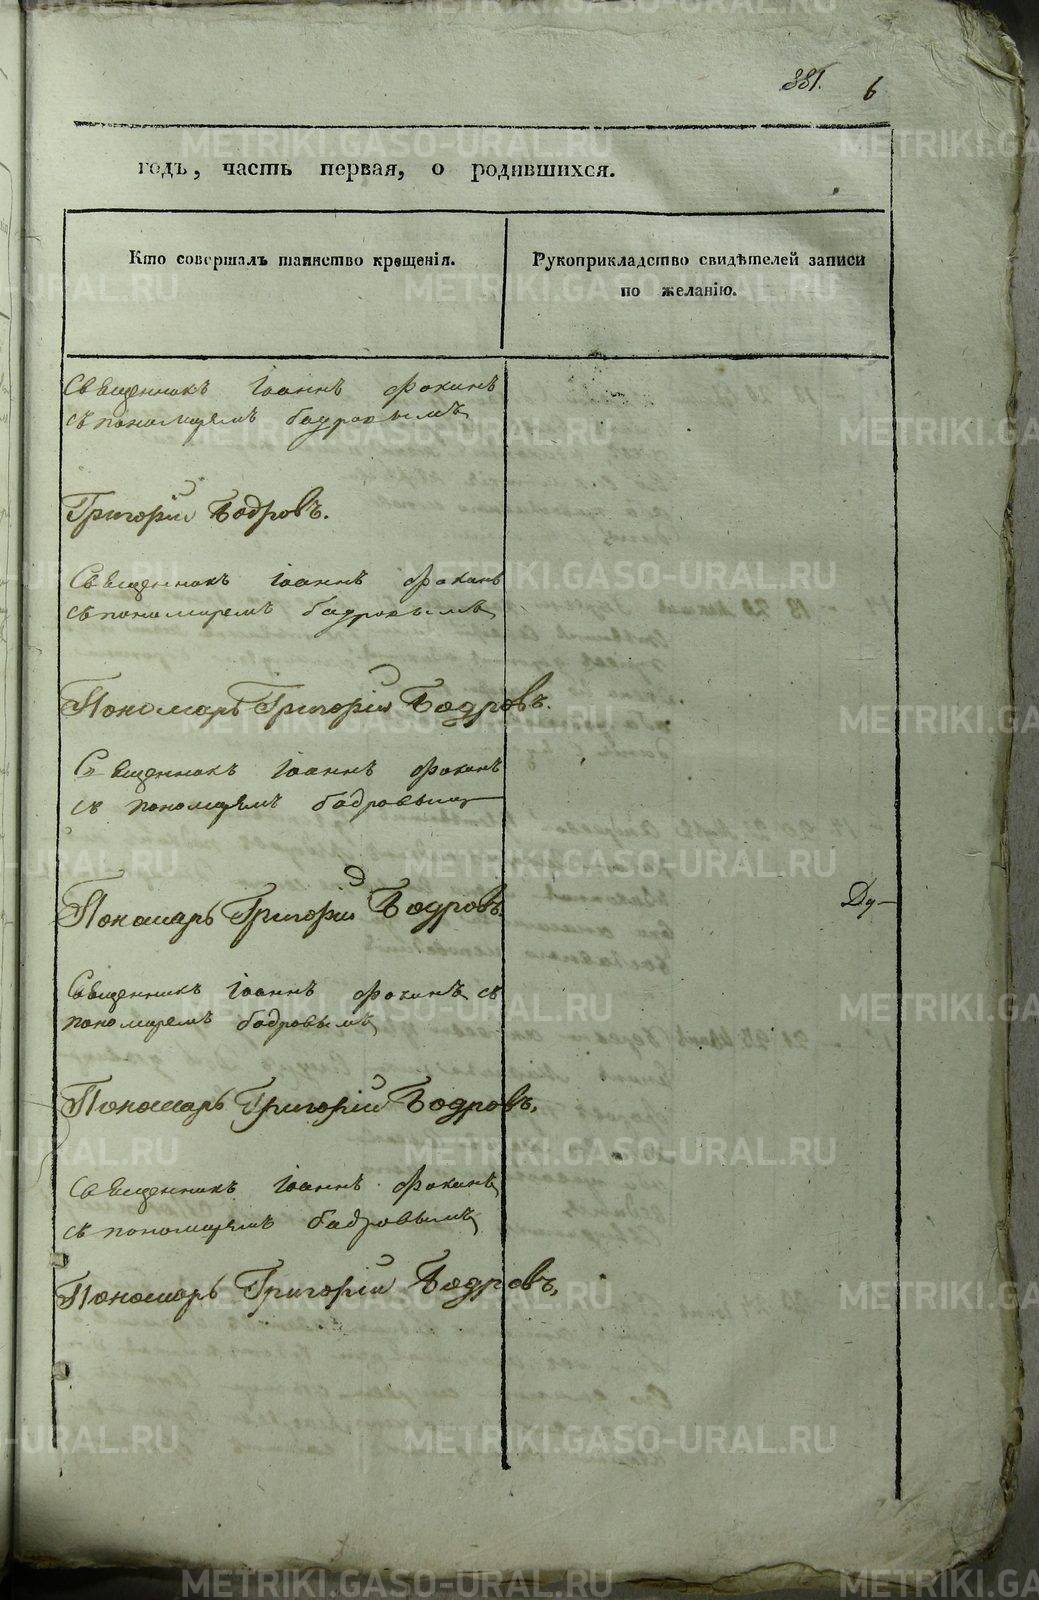 381. 6
годъ, часть первая, о родившихся.
Кто совершалъ таинство крещенія.
Рукоприкладство свидѣтелей записи
по желанію.
Священникъ Іоаннъ Фокинъ
съ пономаремъ бодровымъ
Григорій Бодровъ.
Священникъ Іоаннъ Фокинъ
съ пономаремъ бодровымъ
Пономарь Григорій Бодровъ.
Священникъ Іоаннъ Фокинъ
съ пономаремъ бодровымъ
Пономарь Григорій Бодровъ
Ду-
Священникъ Іоаннъ Фокинъ съ
пономаремъ бодровымъ
Пономарь Григорій Бодровъ,
Священникъ Іоаннъ Фокинъ
съ пономаремъ бодровымъ
Пономарь Григорій Бодровъ,
METRIKI.GASO-URAL.RU